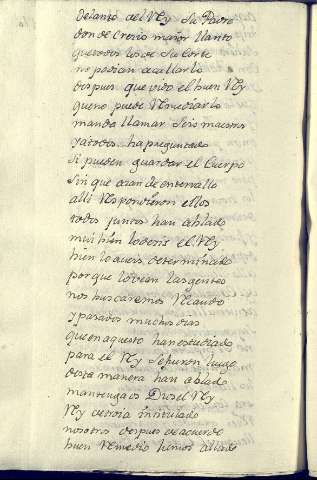 delante del Rey su Padre
don de Crecio maior llanto
que todos los de su Corte
no podian acallarlo
despues que vido el buen Rey
que no puede Remediarlo
manda llamar seis maestros
y a todos ha preguntado
si pueden guardar el Cuerpo
sin que aian de enterrallo
alli Respondieron ellos
todos juntos han ablado
mui bien lo dezis el Rey
bien lo aveis determinado
por que lo vean las gentes
nos buscaremos Recaudo
y pasados muchos dias
que en aquesto han estudiado
para el Rey se fueron luego
desta manera han ablado
mantenga os Dios el Rey
Rey de troia intitulado
nosotros despues de acuerdo
buen Remedio hemos allado